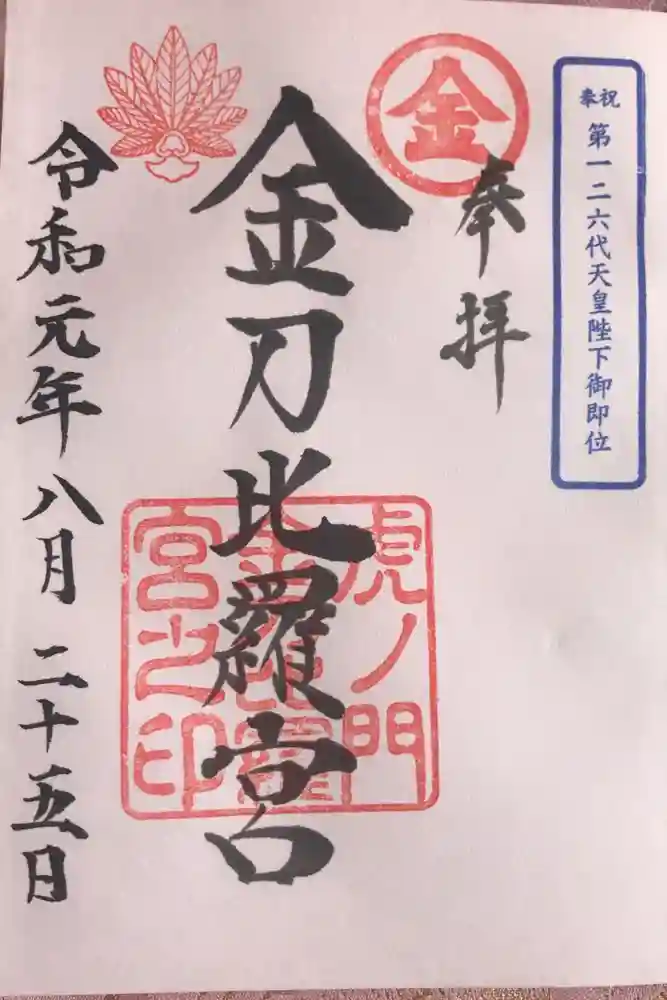 奉祝
第一二六代天皇陛下御即位
金
奉拝
金刀比羅宮
虎ノ門
金刀比羅
宮之印
令和元年八月二十五日